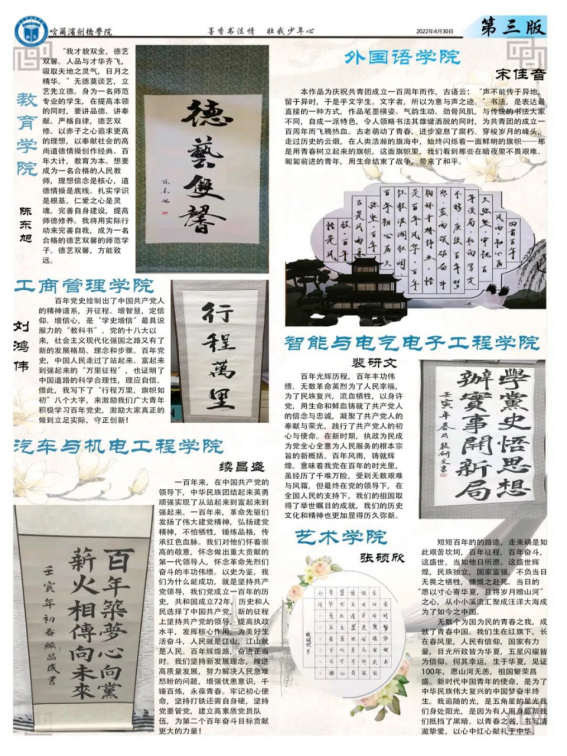 哈爾濱劍橋學院
墨香书法情 壮我少年心
2022年4月30日
第三版
教育学院
陈东旭
“我才貌双全，德艺
双馨。人品与才华齐飞，
吸取天地之灵气，日月之
精华。”无德莫谈艺，立
艺先立德。身为一名师范
专业的学生，在提高本领
的同时，要讲品德、讲奉
献、严格自律，德艺双
修。以赤子之心追求更高
的理想，以奉献社会的高
尚道德情操创作经典。百
年大计，教育为本。想要
成为一名合格的人民教
师，理想信念是核心，道
德情操是底线，扎实学识
是根基，仁爱之心是灵
魂。完善自身建设，提高
师德修养。我将用实际行
动来完善自我，成为一名
合格的德艺双馨的师范学
子。德艺双馨，方能致
远。
德藝雙馨
外国语学院
宋佳音
本作品为庆祝共青团成立一百周年而作，古语云：“声不能传于异地，
留于异时，于是乎文字生。文字者，所以为意与声之迹。”书法，是表达最
直接的一种方式。作品笔墨横姿、气韵生动、劲骨风肌，与传统的书法大家
不同，自成一派特色，令人领略书法其雄健洒脱的同时，为共青团的成立一
百周年而飞腾热血。古老萌动了青春，进步窒息了腐朽，穿梭岁月的峰头，
走过历史的云烟，在人类浩瀚的旗海中，始终闪烁着一面鲜明的旗帜——那
是用青春树立起来的旗帜。这面旗帜里，我们看到那些在暗夜里不畏艰难、
匍匐前进的青年，用生命结束了战争，带来了和平。
工商管理学院
刘鸿伟
百年党史绘制出了中国共产党人
的精神谱系，开征程、增智慧，定信
仰、增信心，是“学史增信”最具说
服力的“教科书”。党的十八大以
来，社会主义现代化强国之路又有了
新的发展格局、理念和步骤。百年党
史，中国人民走过了站起来、富起来
到强起来的“万里征程”，也证明了
中国道路的科学合理性，理应自信。
借此，我写下了“行程万里，旗帜如
初”八个大字，来激励我们广大青年
积极学习百年党史，激励大家真正的
做到立足实际，守正创新！
行程萬里
智能与电气电子工程学院
裴研文
百年光辉历程，百年丰功伟
绩。无数革命英烈为了人民幸福，
为了民族复兴，流血牺牲，以身许
党，用生命和鲜血铸就了共产党人
的信念与忠诚，凝聚了共产党人的
奉献与荣光，践行了共产党人的初
心与使命。在新时期，执政为民成
为党全心全意为人民服务的根本宗
旨的新概括。百年风雨，铸就辉
煌。意味着我党在百年的时光里，
虽经历了千难万险，受到无数艰难
与风霜，但最终在党的领导下，在
全国人民的支持下，我们的祖国取
得了举世瞩目的成就，我们的历史
文化和精神也更加显得历久弥新。
學黨史悟思想
辦實事開新局
汽车与机电工程学院
续昌盛
一百年来，在中国共产党的
领导下，中华民族团结起来英勇
顽强实现了从站起来到富起来到
强起来。一百年来，革命先驱们
发扬了伟大建党精神，弘扬建党
精神，不怕牺牲，锤炼品格，传
承红色血脉。我们对他们怀着崇
高的敬意。怀念做出重大贡献的
第一代领导人，怀念革命先烈们
奋斗的丰功伟绩，以史为鉴，我
们为什么能成功，就是坚持共产
党领导。我们党成立一百年的历
史，共和国成立72年，历史和人
民选择了中国共产党。新的征程
上坚持共产党的领导。提高执政
水平，发挥核心作用，为美好生
活奋斗，人民就是江山，江山就
是人民。百年辉煌路，奋进正当
时。我们坚持新发展理念，推进
高质量发展，努力解决人民急难
愁盼的问题，增强忧患意识，千
锤百炼，永葆青春。牢记初心使
命，坚持打铁还需自身硬，坚持
党要管党，建立高素质党员队
伍，为第二个百年奋斗目标贡献
更大的力量！
百年築夢心向黨
薪火相傳向未來
艺术学院
张硕欣
短短百年的的路途，走来确是如
此艰苦坎坷，百年征程，百年奋斗，
这盛世，当如他日所愿。这盛世辉
煌，民族独立，国家富强，不负当日
无畏之牺牲，慷慨之赴死。当日的
“愿以寸心寄华夏，且将岁月赠山河”
之心，从小小溪流汇聚成汪洋大海成
为了如今之中国。
无数个为国为民的青春之我，成
就了青春中国。我们生在红旗下，长
在春风里，人民有信仰，国家有力
量，目光所致皆为华夏，五星闪耀皆
为信仰。何其幸运，生于华夏，见证
100年，愿山河无恙，祖国繁荣昌
盛。新时代中国青年的使命，是为了
中华民族伟大复兴的中国梦奋斗终
生。我追随的光，是五角星的星光我
们身处阳光，是因为有人用身躯帮我
们抵挡了黑暗。以青春之名，书写清
澈挚爱，以心中红心献礼于中华。